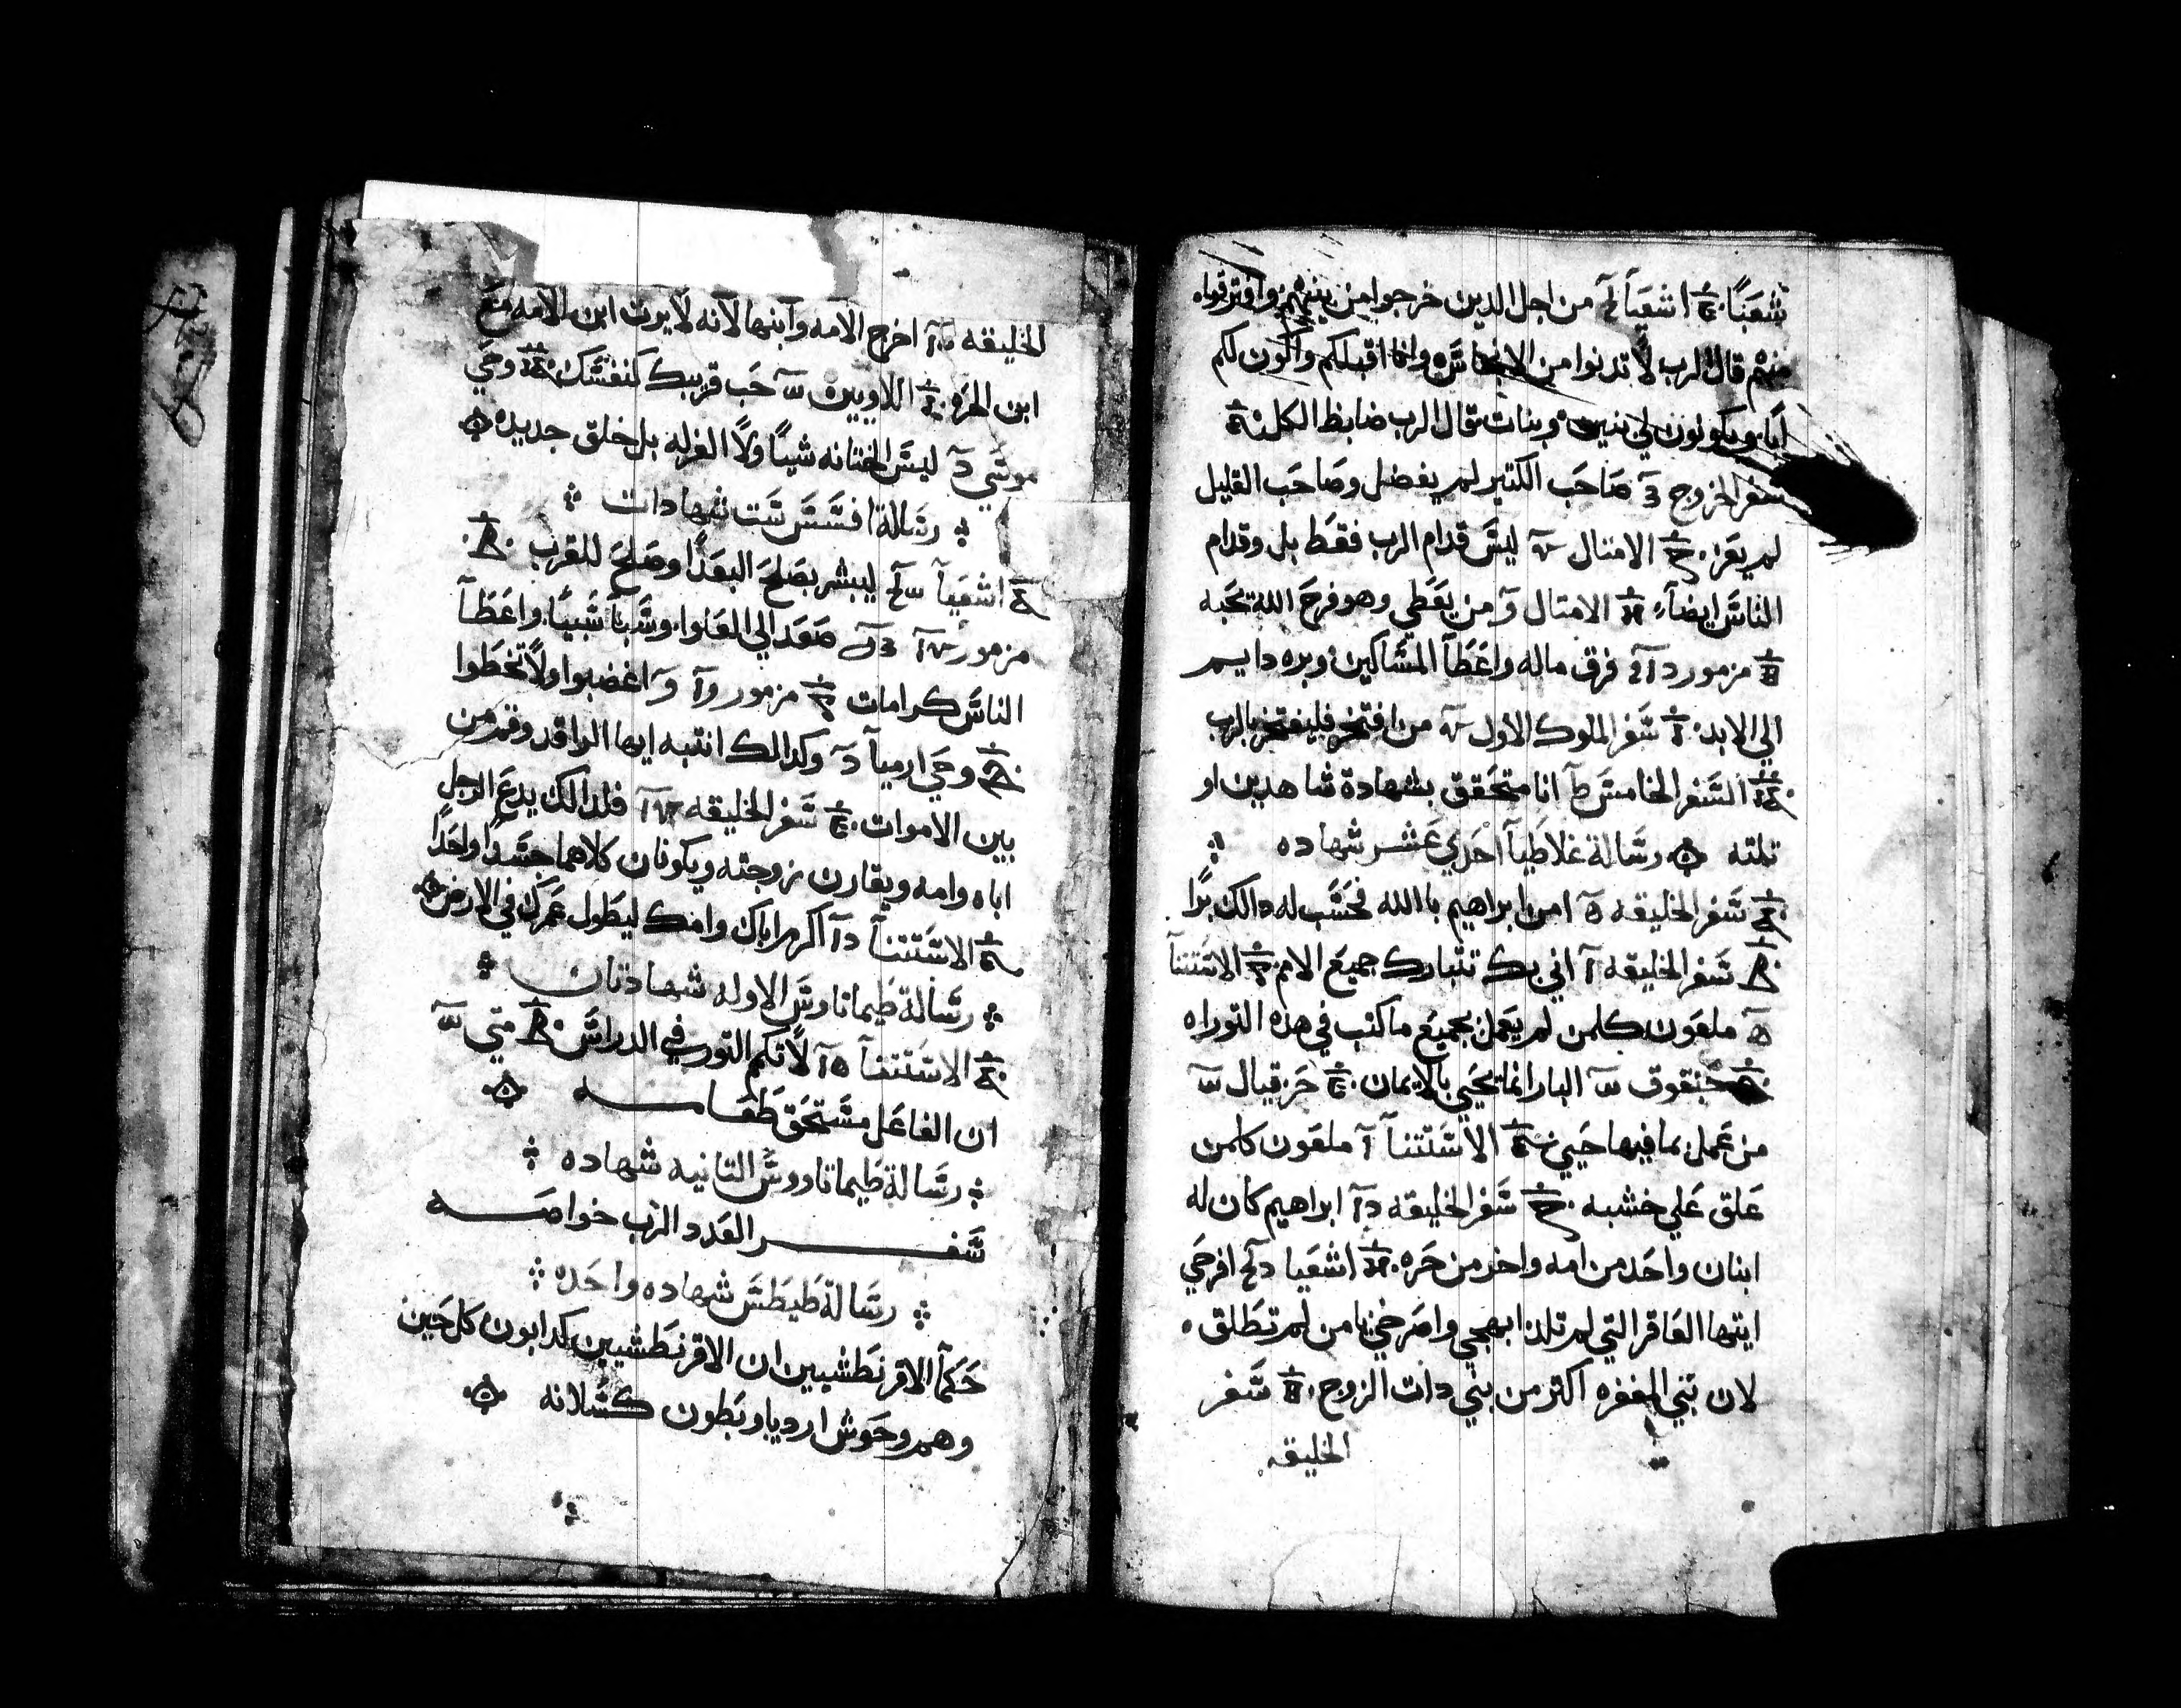 شعبًا اشعيا من اجل الدين خرجوا من بينهم وافترقوا
منهم قال الرب لا تدنوا من الانجاس وانا اقبلكم واكون لكم
ابا وتكونون لي بنين وبنات قال الرب ضابط الكل
سفر الخروج صاحب الكتير لم يفضل وصاحب القليل
لم يعز الامتال ليس قدام الرب فقط بل وقدام
الناس ايضا الامتال من يعطي وهو فرح الله تحبه
مزمور فرق ماله واعطا المساكين وبره دايم
الي الابد سفر الملوك الاول من افتخر فليفتخر بالرب
السفر الخامس انا متحقق بشهادة شاهدين او
تلته رسالة غلاطيا احدي عشر شهاده
سفر الخليقه امن ابراهيم بالله فحسب له دالك برًا
سفر الخليقه اني بك تتبارك جميع الامم الاستتنا
ملعون كلمن لم يعمل بجميع ما كتب في هده التوراه
حبقوق البار انما يحيي بالايمان حزقيال
من عمل بما فيها حيي الاستتنا ملعون كلمن
علق علي خشبه سفر الخليقه ابراهيم كان له
ابنان واحد من امه واخر من حره اشعيا افرحي
ايتها العاقر التي لم تلد ابهجي واصرخي يا من لم تطلق
لان بني المغفره اكتر من بني دات الزوج سفر
الخليقه
الخليقه اخرج الامه وابنها لانه لا يرت ابن الامه مع
ابن الحره اللاويين حب قريبك كنفسك وحي
موسي ليس الختانه شيئا ولا الغرله بل خلق جديده
رسالة افسس ست شهادات
اشعيا ليبشر بصلح البعدا وصلح للقرب
مزمور صعد الي العلوا وسبا سبيا واعطا
الناس كرامات مزمور اغضبوا ولا تخطوا
وحي ارميا وكدالك انتبه ايها الراقد وقم من
بين الاموات سفر الخليقه فلدالك يدع الرجل
اباه وامه ويقارن زوجته ويكونان كلاهما جسدا واحدا
الاستتنا اكرم اباك وامك ليطول عمرك في الارض
رسالة طيماتاوس الاوله شهادتان
الاستتنا لا تكم التور في الدراس متي
ان الفاعل مستحق طعامه
رسالة طيماتاووس التانيه شهاده
سفر العدد الرب خواصه
رسالة طيطس شهاده واحده
حكما الاقرنطشيين ان الاقرنطشيين كدابون كل حين
وهم وحوش ارديا وبطون كسلانه